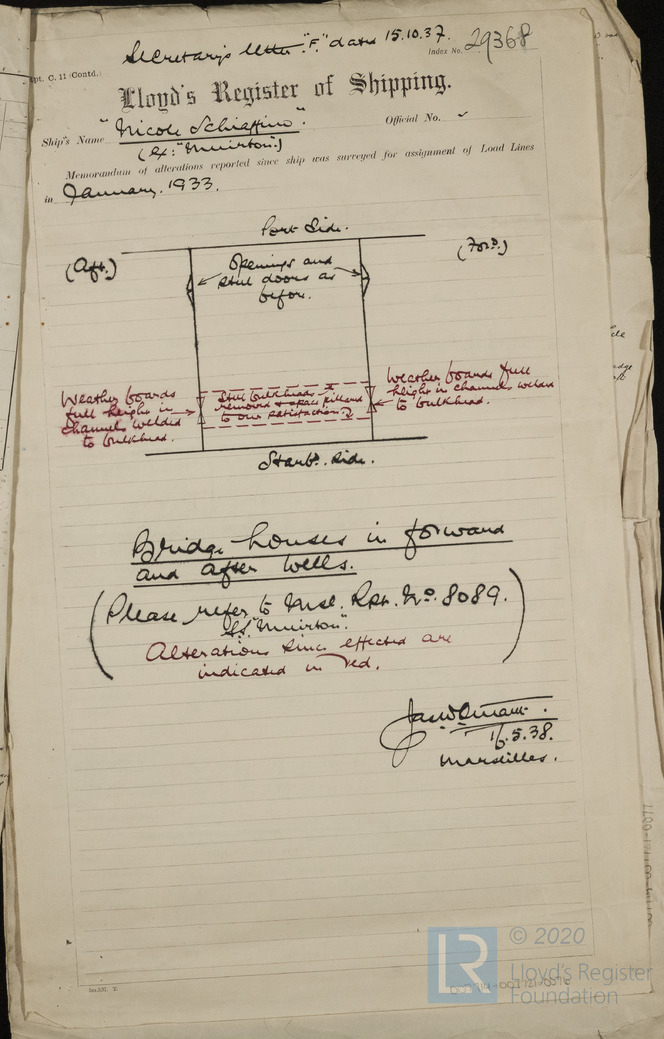 Secretary's letter "F." dated 15.10.37.
Index No. 29368
Rpt. C. 11 (Contd.)
Lloyd's Register of Shipping.
Ship's Name "Nicole Schiaffino". Official No.
(Ex: "Muirton".)
Memorandum of alterations reported since ship was surveyed for assignment of Load Lines
in January. 1933.
Port Side.
(Aft.)
(For'd.)
Openings and
steel doors as
before.
Weather boards
full height in
channels welded
to bulkhead.
Steel bulkheads
removed &
to our satisfaction
Weather boards full
height in channels welded
to bulkhead.
Starbd. side.
Bridge houses in forward
and after wells.
(Please refer to Msl. Rpt. No. 8089.
SS. "Muirton".
Alterations since effected are
indicated in red.)
5.38.
Marseilles.
© 2020
LR
Lloyd's Register
Foundation